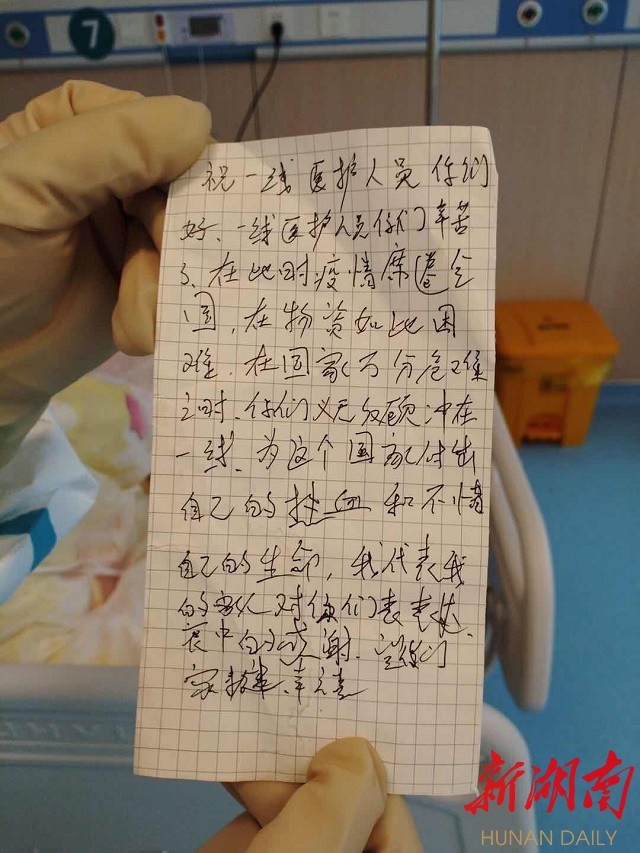 7
祝一线医护人员你们
好、一线医护人员你们辛苦
了、在此时疫情席卷全
国，在物资如此困
难．在国家万分危难
之时．你们义无反顾冲在
一线．为这个国家付出
自己的热血和不惜
自己的生命，我代表我
的家人对你们表表达
衷中的感谢．望你们
家庭幸福
新湖南
HUNAN DAILY